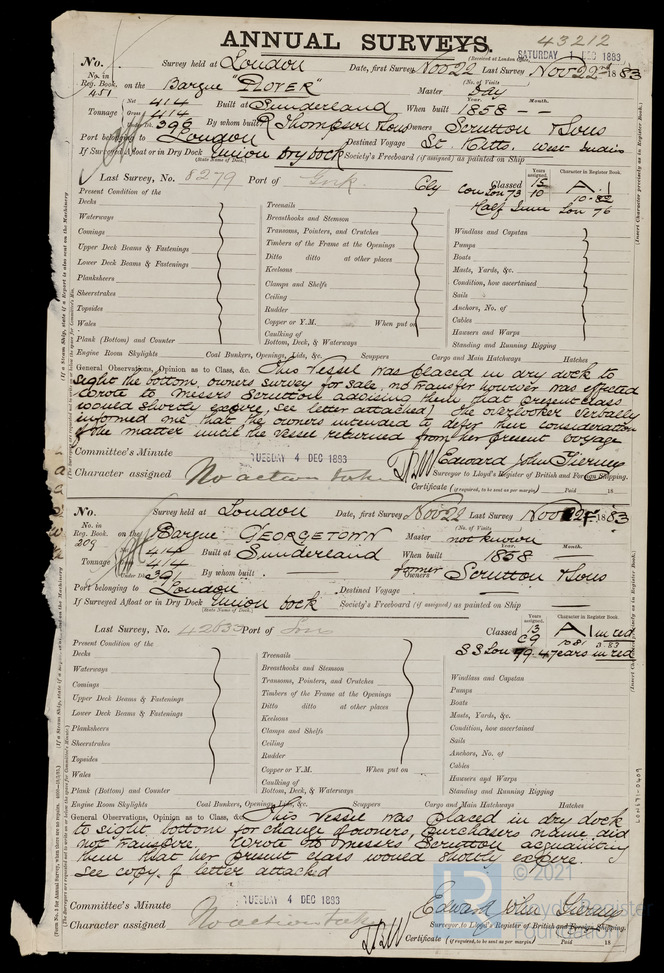 ANNUAL SURVEYS.
43212
(Received at London Office
SATURDAY 1 DEC 1883
No. Survey held at London Date, first Survey Nov 22 Last Survey Nov 22nd 1883
No. in Reg. Book. on the Barque "PLOVER" Master Day
(No. of Visits)
451
Tonnage Net 414 Built at Sunderland When built Year. 1858 Month. — —
Gross 414
Under Dk. 398 By whom built R Thompson & Sons Owners Scrutton & Sons
Port belonging to London Destined Voyage St. Kitts. West Indies
If Surveyed Afloat or in Dry Dock Union Dry Dock Society's Freeboard (if assigned) as painted on Ship
(State Name of Dock.)
Last Survey, No. 8279 Port of Cork Classed Years assigned. 15 Character in Register Book. A.1
Con Lon 73 10 10.82
Half Time Lon 76
Present Condition of the
Decks
Waterways
Comings
Upper Deck Beams & Fastenings
Lower Deck Beams & Fastenings
Planksheers
Sheerstrakes
Topsides
Wales
Plank (Bottom) and Counter
Treenails
Breasthooks and Stemson
Transoms, Pointers, and Crutches
Timbers of the Frame at the Openings
Ditto ditto at other places
Keelsons
Clamps and Shelfs
Ceiling
Rudder
Copper or Y.M. When put on
Caulking of Bottom, Deck, & Waterways
Windlass and Capstan
Pumps
Boats
Masts, Yards, &c.
Condition, how ascertained
Sails
Anchors, No. of
Cables
Hawsers and Warps
Standing and Running Rigging
Engine Room Skylights Coal Bunkers, Openings, Lids, &c. Scuppers Cargo and Main Hatchways Hatches
General Observations, Opinion as to Class, &c. This Vessel was placed in dry dock to
sight the bottom, owners survey for sale, no transfer however was effected
wrote to Messrs Scrutton advising them that present class
would shortly expire, see letter attached. The overlooker verbally
informed me that the owners intended to defer their consideration
of the matter until the vessel returned from her present voyage
Committee's Minute TUESDAY 4 DEC 1883
Edward John Tierney
Character assigned No action taken
Surveyor to Lloyd's Register of British and Foreign Shipping.
Certificate (if required, to be sent as per margin) Paid 18
No. Survey held at London Date, first Survey Nov 22 Last Survey Nov 22 1883
No. in Reg. Book. on the Barque GEORGETOWN Master not known
(No. of Visits)
209
Tonnage 414 Built at Sunderland When built 1858 Month. —
414
Under Dk. 391 By whom built former Owners Scrutton & Sons
Port belonging to London Destined Voyage —
If Surveyed Afloat or in Dry Dock Union dock Society's Freeboard (if assigned) as painted on Ship —
(State Name of Dock.)
Last Survey, No. 42633 Port of Lon Classed Years assigned. 13 Character in Register Book. A1 in red
C9 10 81 3.83
SS Lon 79. 4 years in red
Present Condition of the
Decks
Waterways
Comings
Upper Deck Beams & Fastenings
Lower Deck Beams & Fastenings
Planksheers
Sheerstrakes
Topsides
Wales
Plank (Bottom) and Counter
Treenails
Breasthooks and Stemson
Transoms, Pointers, and Crutches
Timbers of the Frame at the Openings
Ditto ditto at other places
Keelsons
Clamps and Shelfs
Ceiling
Rudder
Copper or Y.M. When put on
Caulking of Bottom, Deck, & Waterways
Windlass and Capstan
Pumps
Boats
Masts, Yards, &c.
Condition, how ascertained
Sails
Anchors, No. of
Cables
Hawsers and Warps
Standing and Running Rigging
Engine Room Skylights Coal Bunkers, Openings, Lids, &c. Scuppers Cargo and Main Hatchways Hatches
General Observations, Opinion as to Class, &c. This Vessel was placed in dry dock
to sight bottom for change of owners, purchasers name did
not transpire. Wrote to Messrs Scrutton acquainting
them that her present class would shortly expire.
see copy of letter attached
Committee's Minute TUESDAY 4 DEC 1883
Edward John Tierney
Character assigned No action taken
Surveyor to Lloyd's Register of British and Foreign Shipping.
Certificate (if required, to be sent as per margin) Paid 18
© 2021
Lloyd's Register
Foundation
LON671-0409